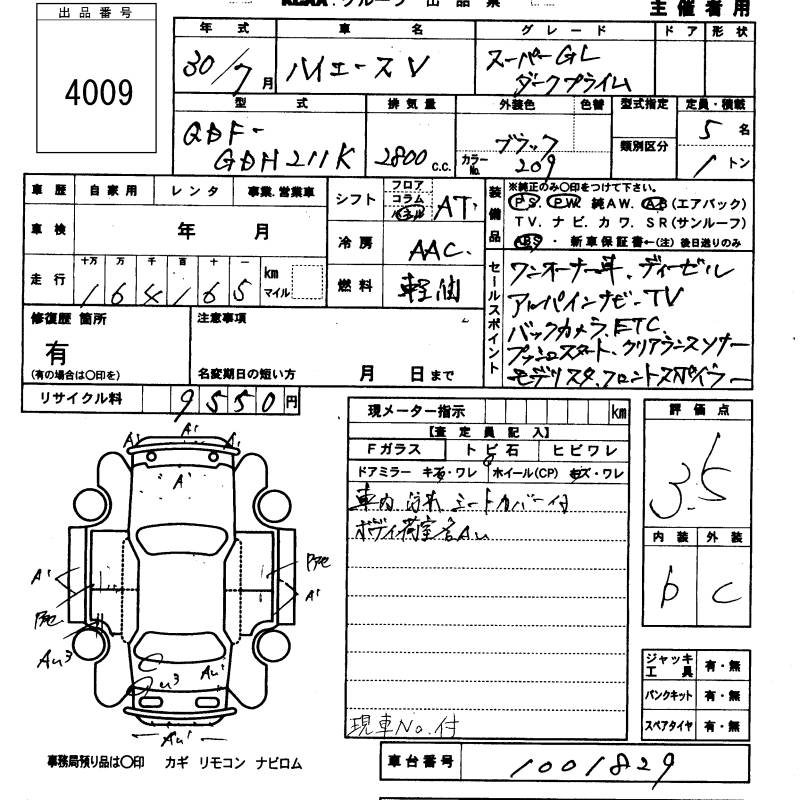 グループ 出品票
主催者用
出品番号
4009
年式 車名 グレード ドア 形状
30/7月 ハイエースV スーパーGL
ダークプライム
型式 排気量 外装色 色替 型式指定 定員・積載
類別区分
QDF-
GDH211K 2800c.c. ブラック
カラーNo. 209
5名
1トン
車歴 自家用 レンタ 事業.営業車
車検 年 月
走行 十万 万 千 百 十 一 km マイル
164165
シフト フロア コラム パネル AT
冷房 AAC
燃料 軽油
装備品
※純正のみ〇印をつけて下さい。
PS PW 純AW. AB(エアバック)
TV. ナビ. カワ. SR(サンルーフ)
ABS ・ 新車保証書←(注) 後日送りのみ
セールスポイント
ワンオーナー車. ディーゼル
アルパインナビ・TV
バックカメラ. ETC.
プッシュスタート. クリアランスソナー
モデリスタ. フロントスポイラー
修復歴 箇所
有
(有の場合は〇印を)
注意事項
名変期日の短い方 月 日まで
リサイクル料 9550円
現メーター指示 km
【査定員記入】
Fガラス トビ石 ヒビワレ
ドアミラー キズ・ワレ ホイール(CP) キズ・ワレ
車内汚れ シートカバー付
ボディ荷室各Au
現車No.付
評価点
3.5
内装 外装
b C
ジャッキ工具 有・無
パンクキット 有・無
スペアタイヤ 有・無
A' A' A'
A'
A'
A'
Au3
u3
Au'
Au'
事務局預り品は〇印 カギ リモコン ナビロム
車台番号 1001829